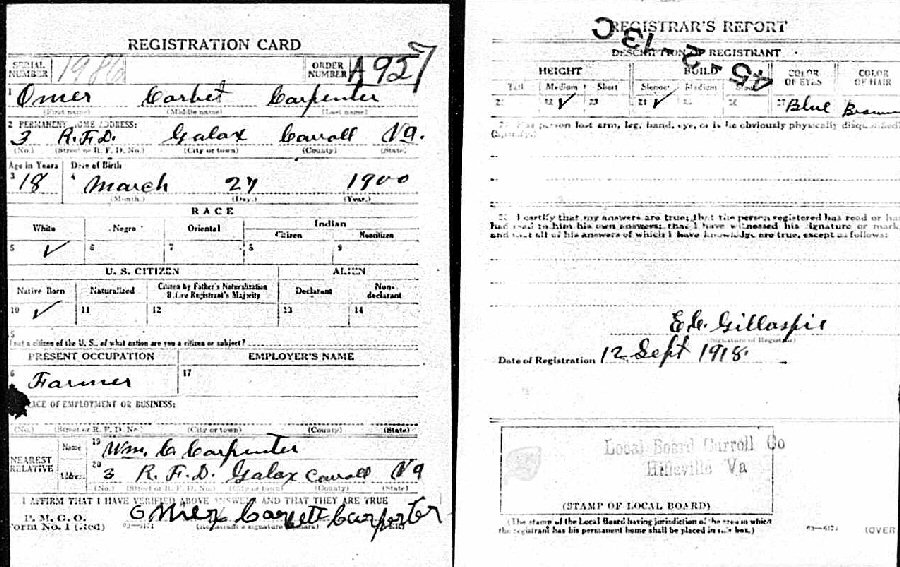 REGISTRATION CARD
SERIAL NUMBER 1986 ORDER NUMBER A927
1 Omer Corbet Carpenter
(First name) (Middle name) (Last name)
2 PERMANENT HOME ADDRESS:
3 R.F.D. Galax Carroll Va.
(No.) (Street or R. F. D. No.) (City or town) (County) (State)
Age in Years Date of Birth
3 18 4 March 27 1900
(Month.) (Day.) (Year.)
RACE
White Negro Oriental Indian
Citizen Noncitizen
5 ✓ 6 7 8 9
U. S. CITIZEN ALIEN
Native Born Naturalized Citizen by Father's Naturalization Before Registrant's Majority Declarant Non-declarant
10 ✓ 11 12 13 14
If not a citizen of the U. S., of what nation are you a citizen or subject?
PRESENT OCCUPATION EMPLOYER'S NAME
Farmer 17
PLACE OF EMPLOYMENT OR BUSINESS:
(No.) (Street or R. F. D. No.) (City or town) (County) (State)
NEAREST RELATIVE Name 19 Wm. C. Carpenter
Address 20 3 R.F.D. Galax Carroll Va
(No.) (Street or R. F. D. No.) (City or town) (County) (State)
I AFFIRM THAT I HAVE VERIFIED ABOVE ANSWERS AND THAT THEY ARE TRUE
P. M. G. O.
Form No. 1 (Red) Omer Corbett Carpenter
REGISTRAR'S REPORT
45-2-13 C
DESCRIPTION OF REGISTRANT
HEIGHT BUILD COLOR OF EYES COLOR OF HAIR
Tall Medium Short Slender Medium
21 22 ✓ 23 24 ✓ 25 26 27 Blue Brown
person lost arm, leg, hand, eye, or is he obviously physically
30 I certify that my answers are true; that the person registered has read or has
had read to him his own answers; that I have witnessed his signature or mark,
and that all of his answers of which I have knowledge are true, except as follows:
E. C. Gillaspie
(Signature of Registrar)
Date of Registration 12 Sept 1918
Local Board Carroll Co
Hillsville Va
(STAMP OF LOCAL BOARD)
(The stamp of the Local Board having jurisdiction of the area in which
the registrant has his permanent home shall be placed in this box.)
(OVER)